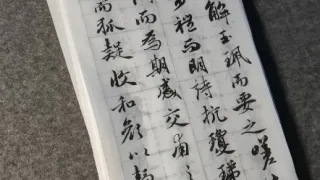 解玉珮而要之嗟
禮而明詩抗瓊珶
而為期感交甫
而狐疑收和顏以靜